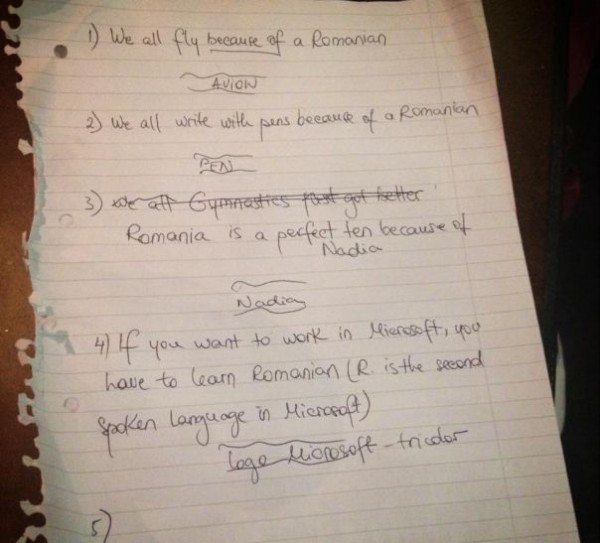 1) We all fly because of a Romanian
AVION
2) We all write with pens because of a Romanian
PEN
3) We all Gymnastics just got better
Romania is a perfect ten because of
Nadia
Nadia
4) If you want to work in Microsoft, you
have to learn Romanian (R. is the second
spoken language in Microsoft)
Logo Microsoft - tricolor
5)